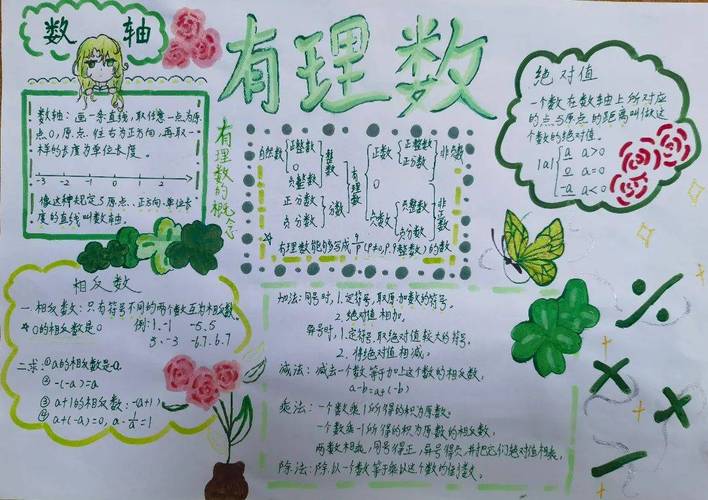 数轴
有理数
绝对值
数轴：画一条直线，取任意一点为原
点0，原点往右为正方向，再取一
样的长度为单位长度。
-3 -2 -1 0 1 2
像这种规定了原点、正方向、单位长
度的直线叫数轴。
有理数的概念
自然数 正整数 整数
0
负整数
正分数 分数
负分数
有理数
正数 正整数 非负数
正分数
0
负数 负整数 非正数
负分数
☆有理数能够写成 (P≠0,P,q整数)的数
一个数在数轴上所对应
的点与原点的距离叫做这
个数的绝对值。
|a| a a>0
0 a=0
-a a<0
相反数
一、相反数：只有符号不同的两个数互为相反数
☆0的相反数是0 例：1.-1 -5.5
3.-3 -6.7.6.7
二求：①a的相反数是-a.
②-(-a)=a
③a+1的相反数：-(a+1)
④a+(-a)=0,
加法：同号时，1.定符号，取原加数的符号。
2.绝对值相加。
异号时，1.定符号，取绝对值较大的符号。
2.将绝对值相减。
减法：减去一个数等于加上这个数的相反数。
a-b=a+(-b)
乘法：一个数乘1所得的积为原数。
一个数乘-1所得的积为原数的相反数。
两数相乘，同号得正，异号得负，并把它们绝对值相乘。
除法：除以一个数等于乘以这个数的倒数。
÷
×
×
-